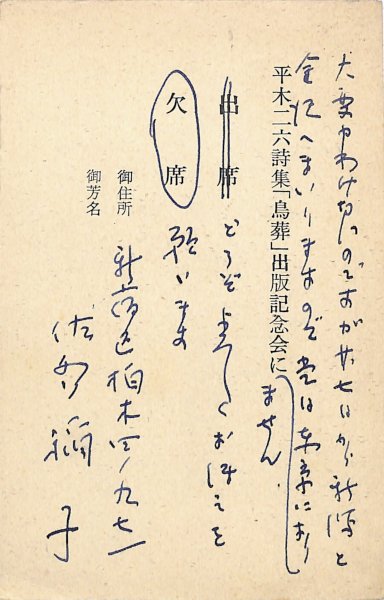 大変申わけないのですが廿七日から新潟と
金沢へまいりますので 当日は東京におり
ません。
平木二六詩集「鳥葬」出版記念会に
出席
どうぞよろしくお伝えを
欠席
願います
御住所 新宿区柏木四ノ九七一
御芳名 佐多稲子